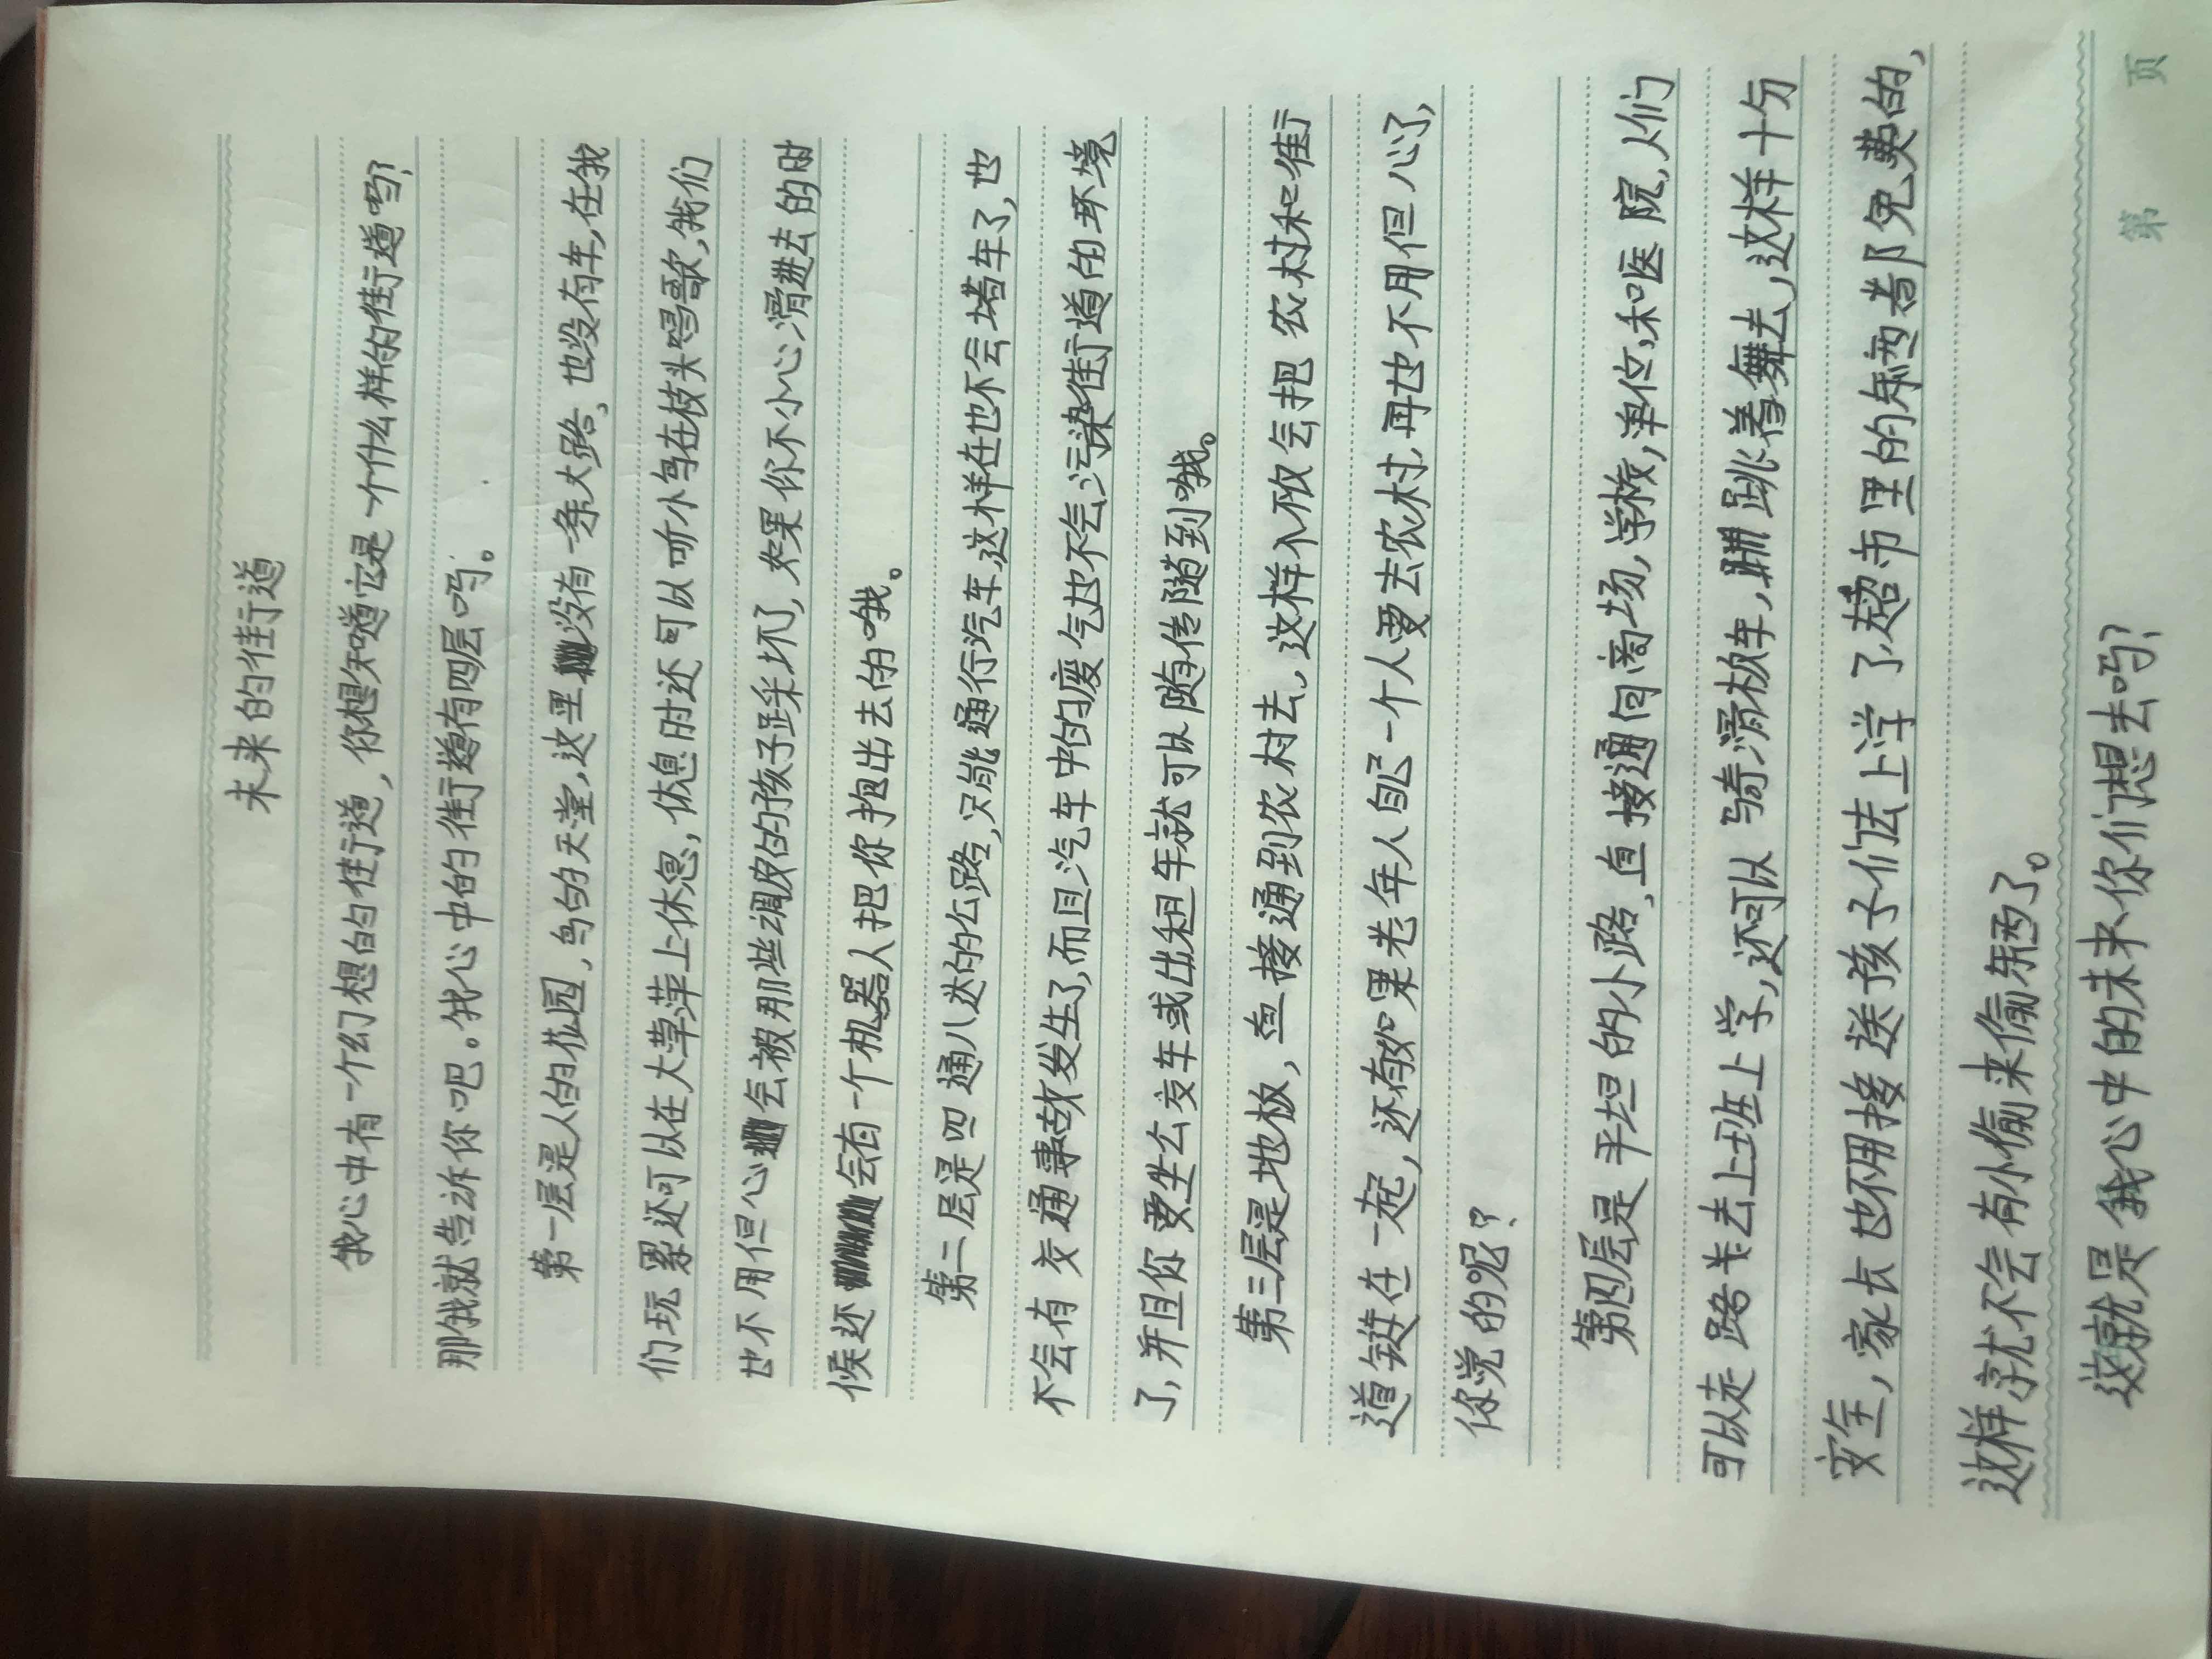 未来的街道
我心中有一个幻想的街道，你想知道它是一个什么样的街道吗？
那我就告诉你吧。我心中的街道有四层吗。
第一层是人的花园，鸟的天堂，这里没有一条大路，也没有车，在我
们玩累还可以在大草萍上休息，休息时还可以听小鸟在枝头唱歌，我们
也不用但心会被那些调皮的孩子踩坏了，如果你不小心滑进去的时
候还会有一个机器人把你抱出去的哦。
第二层是四通八达的公路，只能通行汽车，这样在也不会堵车了，也
不会有交通事故发生了，而且汽车中的废气也不会污染街道的环境
了，并且你要坐公交车或出租车就可以随传随到哦。
第三层是地板，直接通到农村去，这样不仅会把农村和街
道链在一起，还有如果老年人自己一个人要去农村，再也不用但心了，
你觉的呢？
第四层是平坦的小路，直接通向商场，学校，单位，和医院，人们
可以走路去上班上学，还可以骑滑板车，跳着舞去，这样十分
安全，家长也不用接送孩子们去上学了，超市里的东西都免费的，
这样就不会有小偷来偷东西了。
这就是我心中的未来你们想去吗？
第 页